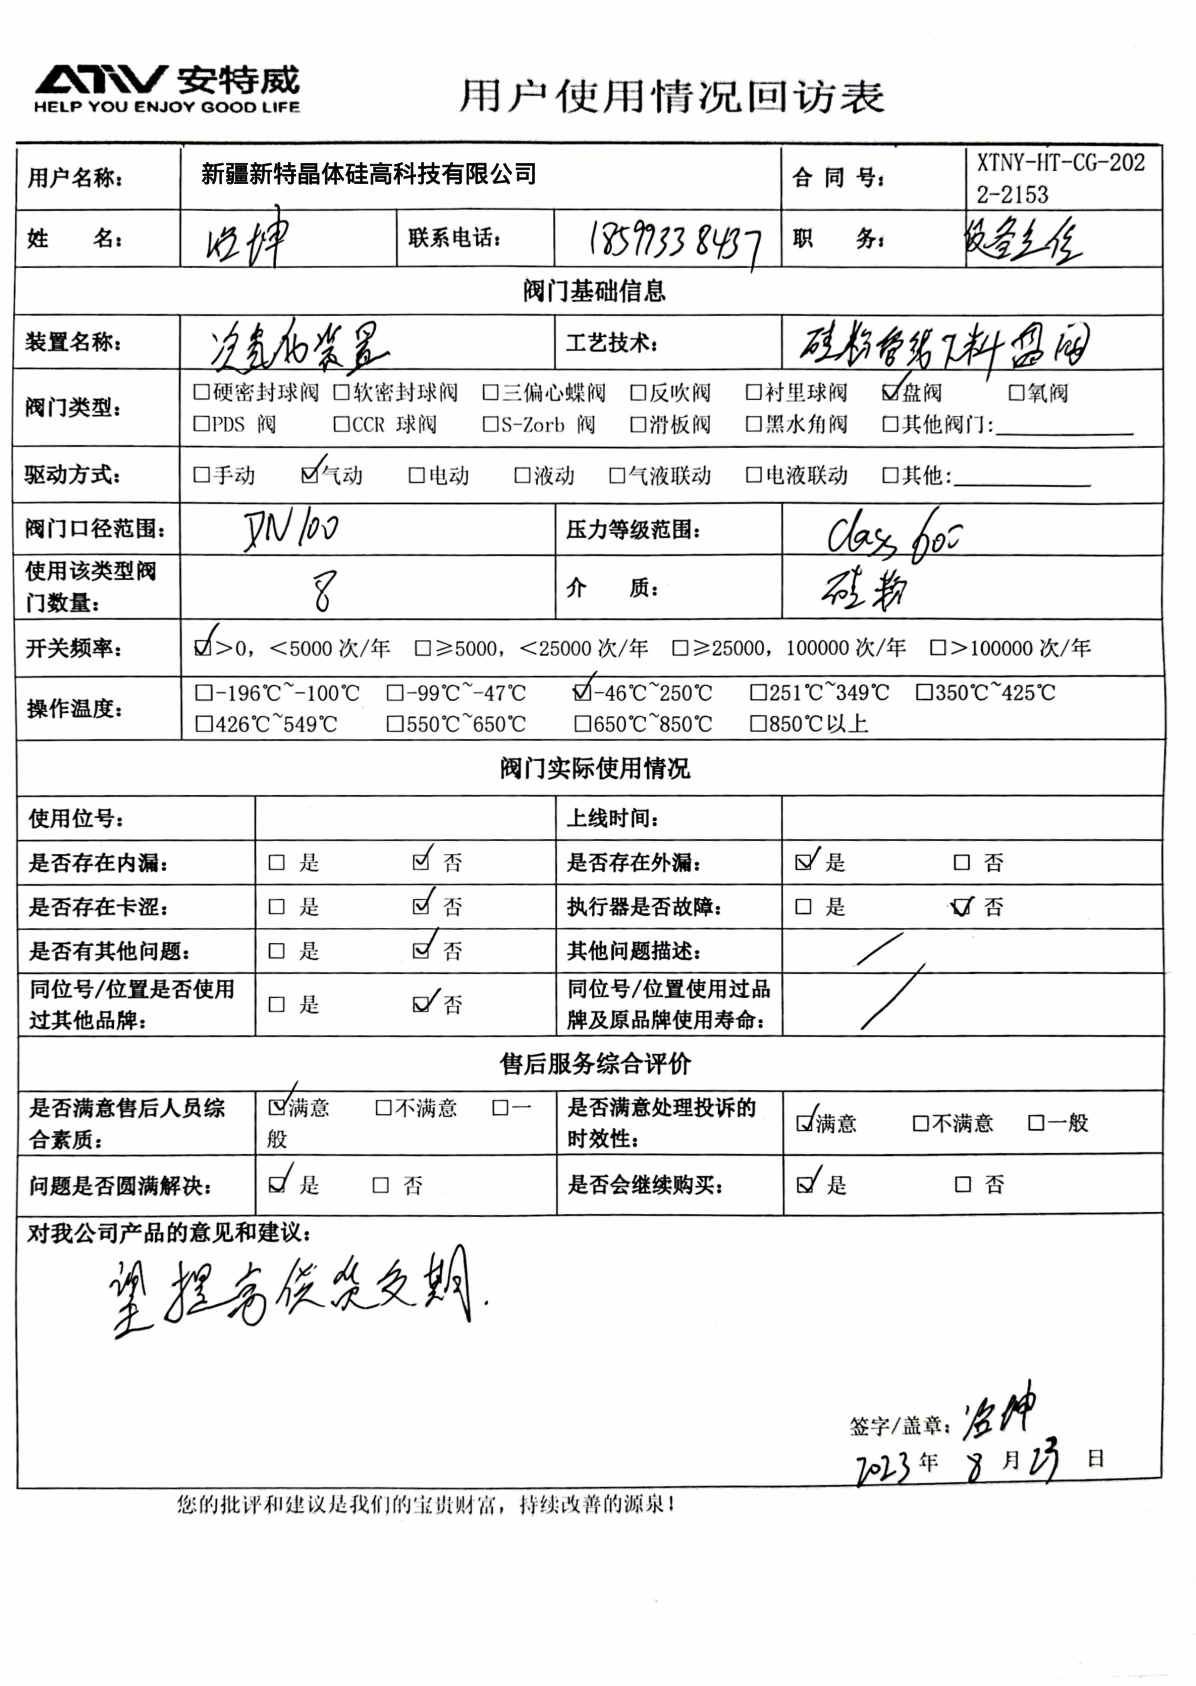 ATIV 安特威
HELP YOU ENJOY GOOD LIFE
用户使用情况回访表
用户名称： 新疆新特晶体硅高科技有限公司 合同号： XTNY-HT-CG-202
2-2153
姓 名： 坤 联系电话： 18599338437 职 务： 设备主任
阀门基础信息
装置名称： 冷氢化装置 工艺技术： 硅粉管线下料盘阀
阀门类型： □硬密封球阀 □软密封球阀 □三偏心蝶阀 □反吹阀 □衬里球阀 ☑盘阀 □氧阀
□PDS 阀 □CCR 球阀 □S-Zorb 阀 □滑板阀 □黑水角阀 □其他阀门:
驱动方式： □手动 ☑气动 □电动 □液动 □气液联动 □电液联动 □其他:
阀门口径范围： DN100 压力等级范围： Class 600
使用该类型阀
门数量： 8 介 质： 硅粉
开关频率： ☑>0，<5000 次/年 □≥5000，<25000 次/年 □≥25000，100000 次/年 □>100000 次/年
操作温度： □-196℃~-100℃ □-99℃~-47℃ ☑-46℃~250℃ □251℃~349℃ □350℃~425℃
□426℃~549℃ □550℃~650℃ □650℃~850℃ □850℃以上
阀门实际使用情况
使用位号： 上线时间：
是否存在内漏： □ 是 ☑ 否 是否存在外漏： ☑ 是 □ 否
是否存在卡涩： □ 是 ☑ 否 执行器是否故障： □ 是 ☑ 否
是否有其他问题： □ 是 ☑ 否 其他问题描述： /
同位号/位置是否使用
过其他品牌： □ 是 ☑ 否 同位号/位置使用过品
牌及原品牌使用寿命： /
售后服务综合评价
是否满意售后人员综
合素质： ☑满意 □不满意 □一
般 是否满意处理投诉的
时效性： ☑满意 □不满意 □一般
问题是否圆满解决： ☑ 是 □ 否 是否会继续购买： ☑ 是 □ 否
对我公司产品的意见和建议：
望提高供货交期.
签字/盖章： 坤
2023 年 8 月 23 日
您的批评和建议是我们的宝贵财富，持续改善的源泉！